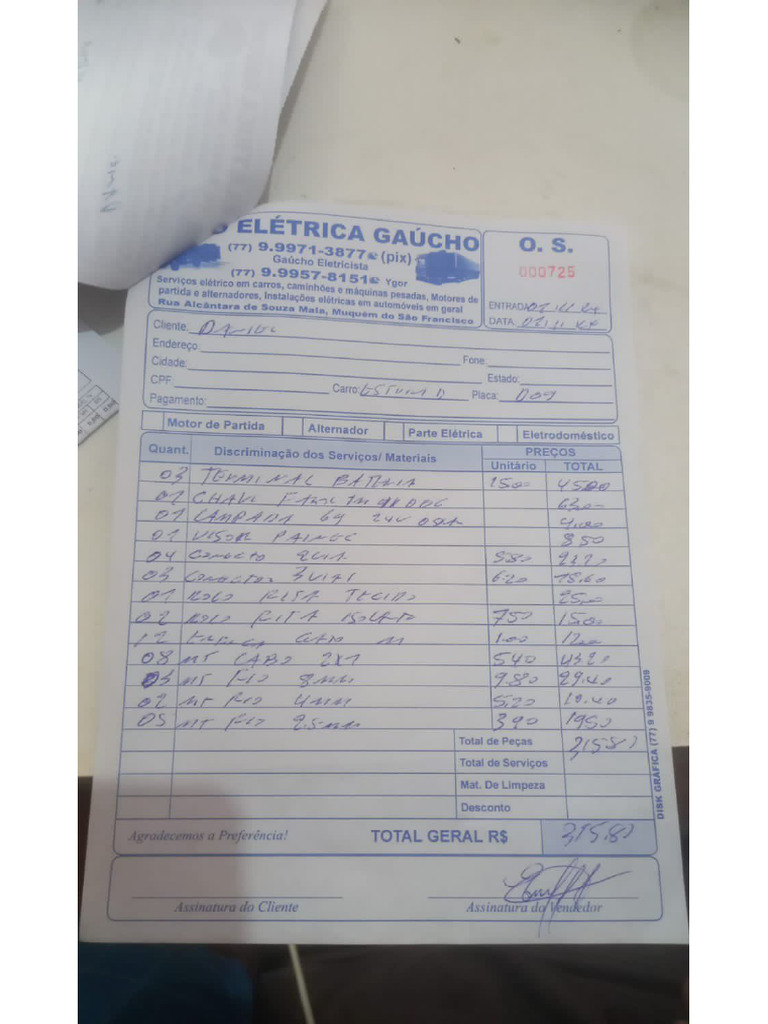 ELÉTRICA GAÚCHO
(77) 9.9971-3877 (pix)
Gaúcho Eletricista
(77) 9.9957-8151 Ygor
Serviços elétrico em carros, caminhões e máquinas pesadas, Motores de
partida e alternadores, Instalações elétricas em automóveis em geral
Rua Alcântara de Souza Mata, Muquém do São Francisco
O. S.
000725
ENTRADA
DATA
Cliente:
Endereço: Fone:
Cidade: Estado:
CPF: Carro: Placa: 009
Pagamento:
Motor de Partida Alternador Parte Elétrica Eletrodoméstico
Quant. Discriminação dos Serviços/ Materiais PREÇOS
Unitário TOTAL
03 TERMINAL BATERIA 1500 4500
01 CHAVE
01 LAMPADA 69 24V
01 VISOR PAINEL 850
04 CONECTO 2VIA 580 2320
03 CONECTOR 3VIAS 620 18.60
01 ROLO FITA TECIDO 25,00
02 ROLO FITA ISOLATO 750 15,00
12 CABO 1.00 1200
08 MT CABO 2X1 540 4320
03 MT FIO 8MM 9.80 29.40
02 MT FIO 4MM 5,20 10.40
05 MT FIO 2.5MM 390 1950
Total de Peças 315,80
Total de Serviços
Mat. De Limpeza
Desconto
Agradecemos a Preferência! TOTAL GERAL R$ 315,80
Assinatura do Cliente Assinatura do Vendedor
DISK GRÁFICA (77) 9 9835-9009